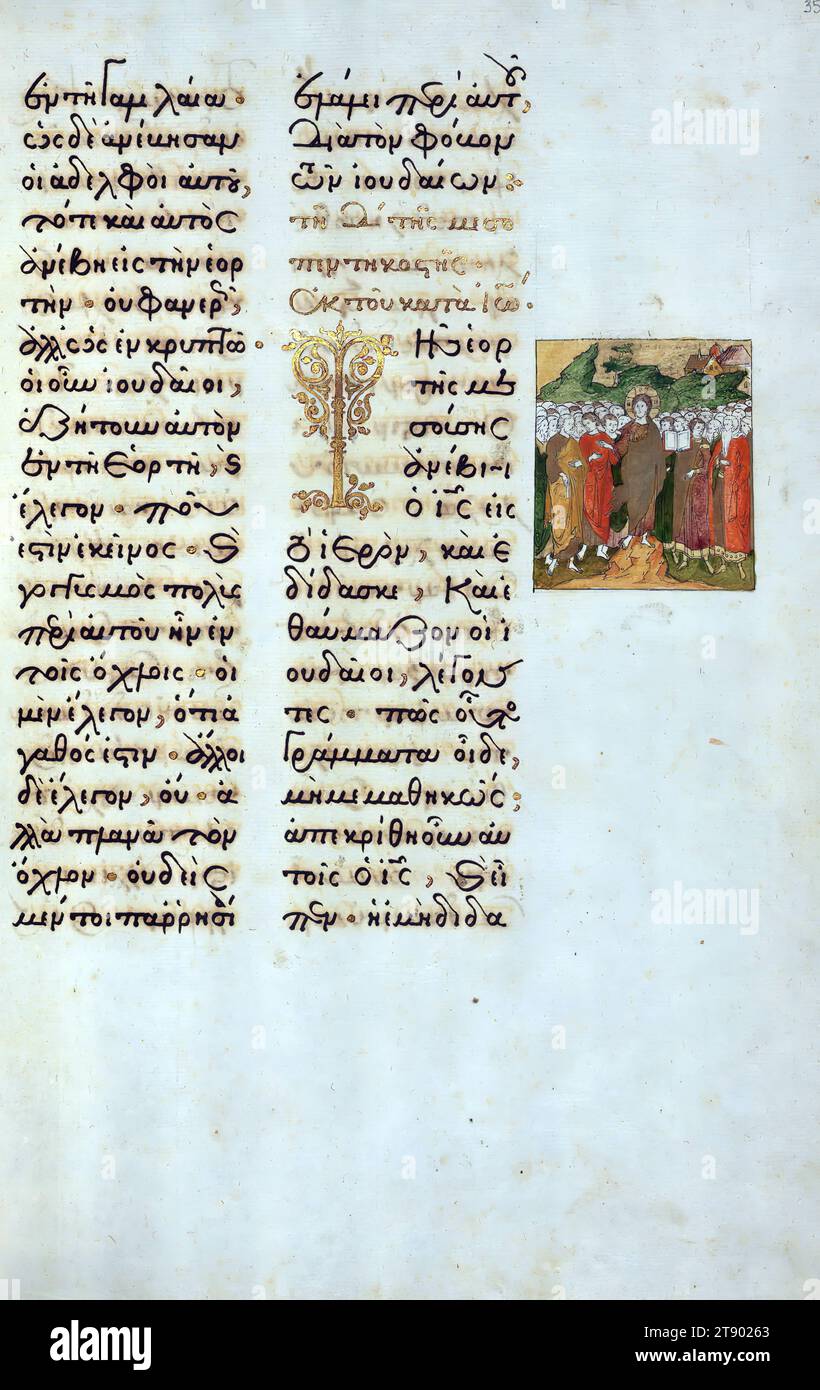 ἐν τῇ Γαλιλαία·
ὡς δὲ ἀνέβησαν
οἱ ἀδελφοὶ αὐτοῦ,
τότε καὶ αὐτὸς
ἀνέβη εἰς τὴν ἑορ
τὴν· οὐ φανερῶς
ἀλλ' ὡς ἐν κρυπτῶ·
οἱ οὖν ἰουδαῖοι,
ἐζήτουν αὐτὸν
ἐν τῇ ἑορτῇ, ϗ
ἔλεγον· ποῦ
ἐστὶν ἐκεῖνος· ϗ
γογγυσμὸς πολὺς
περὶ αὐτοῦ ἦν ἐν
τοῖς ὄχλοις· οἱ
μὲν ἔλεγον, ὅτι ἀ
γαθός ἐστιν· ἄλλοι
δὲ ἔλεγον, οὔ· ἀ
λλὰ πλανᾶ τὸν
ὄχλον· οὐδεὶς
μέντοι παρρησί
ἐλάλει περὶ αὐτοῦ,
διὰ τὸν φόβον
τῶν ἰουδαίων:
τῇ Δ τῆς μεσο
πεντηκοστῆς·
Ἐκ τοῦ κατὰ Ἰω·
Τ ῆς ἑορ
τῆς με
σούσης
ἀνέβη
ὁ ις εἰς
τὸ ἱερὸν, καὶ ἐ
δίδασκε, Καὶ ἐ
θαύμαζον οἱ ἰ
ουδαῖοι, λέγον
τες· πῶς οὗτος
γράμματα οἶδε,
μὴ μεμαθηκώς;
ἀπεκρίθη οὖν αὐ
τοῖς ὁ ις, ϗ εἶ
πεν· ἡ ἐμὴ διδα
35
alamy
alamy
alamy
2T90263
Image ID: 2T90263
www.alamy.com